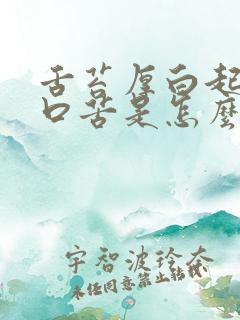 舌苔厚白起
口苦是怎麼
宇智波玲奈
未经同意禁止转载